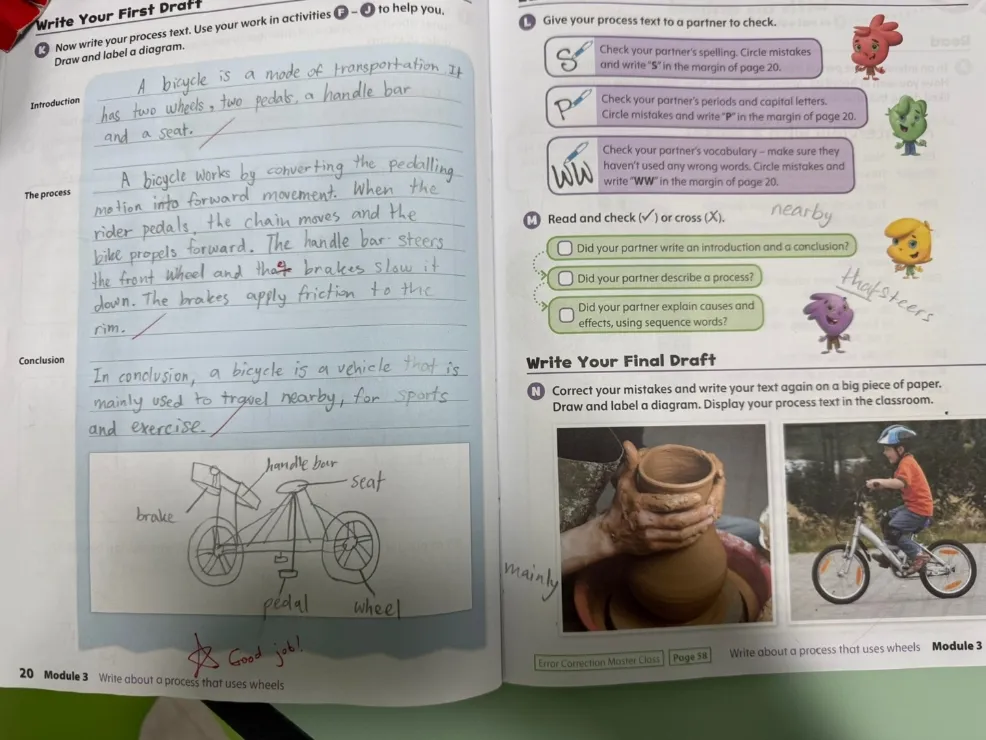 Write Your First Draft
K Now write your process text. Use your work in activities F – J to help you.
Draw and label a diagram.
Introduction
A bicycle is a mode of transportation It
has two wheels, two pedals, a handle bar
and a seat.
The process
A bicycle works by converting the pedalling
motion into forward movement. When the
rider pedals, the chain moves and the
bike propels forward. The handle bar steers
the front wheel and the brakes slow it
down. The brakes apply friction to the
rim.
Conclusion
In conclusion, a bicycle is a vehicle that is
mainly used to travel nearby, for sports
and exercise.
handle bar
seat
brake
pedal
wheel
Good job!
20 Module 3 Write about a process that uses wheels
L Give your process text to a partner to check.
S
Check your partner's spelling. Circle mistakes
and write "S" in the margin of page 20.
P
Check your partner's periods and capital letters.
Circle mistakes and write "P" in the margin of page 20.
WW
Check your partner's vocabulary – make sure they
haven't used any wrong words. Circle mistakes and
write "WW" in the margin of page 20.
M Read and check (✓) or cross (X).
nearby
Did your partner write an introduction and a conclusion?
Did your partner describe a process?
Did your partner explain causes and
effects, using sequence words?
that steers
Write Your Final Draft
N Correct your mistakes and write your text again on a big piece of paper.
Draw and label a diagram. Display your process text in the classroom.
mainly
Error Correction Master Class Page 58
Write about a process that uses wheels Module 3